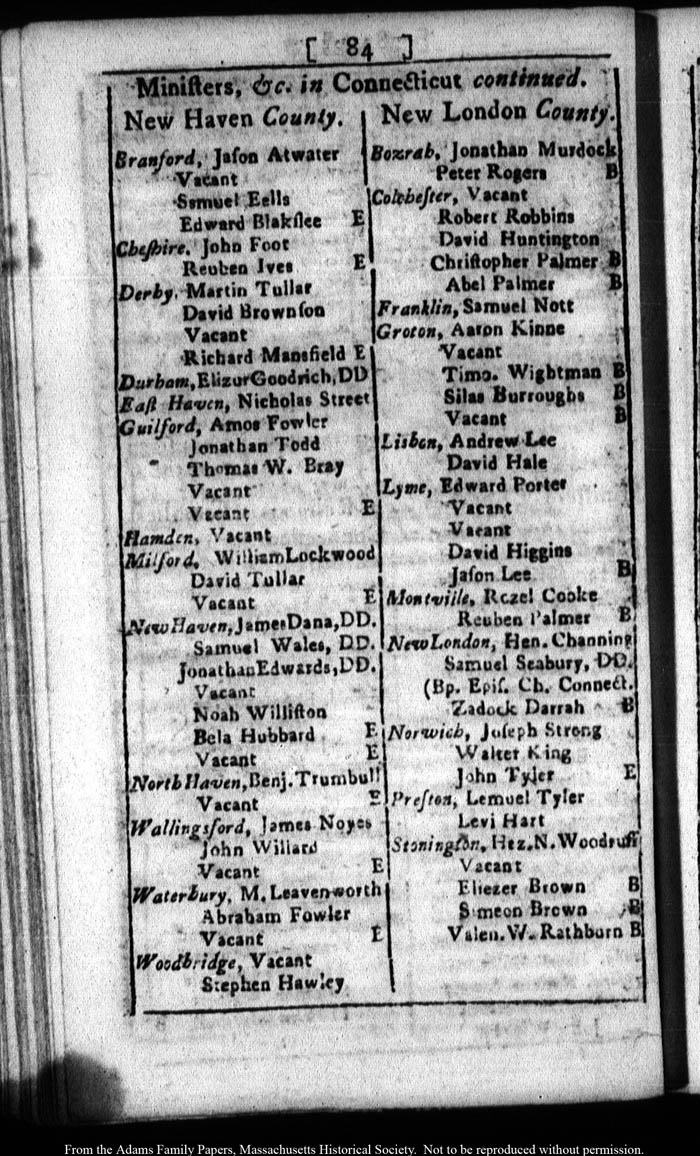 [ 84 ]
Miniſters, &c. in Connecticut continued.
New Haven County.
Branford, Jaſon Atwater
Vacant
Samuel Eells
Edward Blakſlee E
Cheſhire, John Foot
Reuben Ives E
Derby, Martin Tullar
David Brownſon
Vacant
Richard Mansfield E
Durham, Elizur Goodrich, DD
Eaſt Haven, Nicholas Street
Guilford, Amos Fowler
Jonathan Todd
Thomas W. Bray
Vacant
Vacant E
Hamden, Vacant
Milford, William Lockwood
David Tullar
Vacant E
New Haven, James Dana, DD.
Samuel Wales, DD.
Jonathan Edwards, DD.
Vacant
Noah Williſton
Bela Hubbard E
Vacant E
North Haven, Benj. Trumbull
Vacant E
Wallingsford, James Noyes
John Willard
Vacant E
Waterbury, M. Leavenworth
Abraham Fowler
Vacant E
Woodbridge, Vacant
Stephen Hawley
New London County.
Bozrah, Jonathan Murdock
Peter Rogers B
Colcheſter, Vacant
Robert Robbins
David Huntington
Chriſtopher Palmer B
Abel Palmer B
Franklin, Samuel Nott
Groton, Aaron Kinne
Vacant
Timo. Wightman B
Silas Burroughs B
Vacant B
Lisbon, Andrew Lee
David Hale
Lyme, Edward Porter
Vacant
Vacant
David Higgins
Jaſon Lee B
Montville, Rozel Cooke
Reuben Palmer B
New London, Hen. Channing
Samuel Seabury, DD.
(Bp. Epiſ. Ch. Connect.
Zadock Darrah B
Norwich, Joſeph Strong
Walter King
John Tyler E
Preſton, Lemuel Tyler
Levi Hart
Stonington, Hez. N. Woodruff
Vacant
Eliezer Brown B
Simeon Brown B
Valen. W. Rathburn B
From the Adams Family Papers, Massachusetts Historical Society. Not to be reproduced without permission.